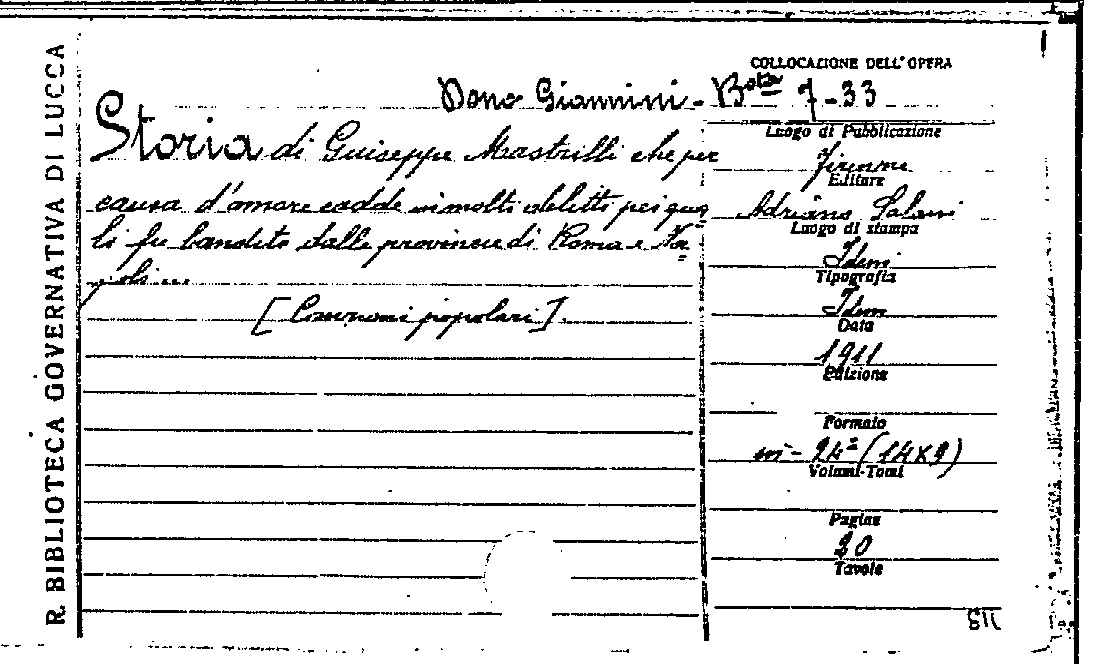 R. BIBLIOTECA GOVERNATIVA DI LUCCA
COLLOCAZIONE DELL'OPERA
Dono Giannini - B.sta 7-33
Storia di Guiseppe Mastrilli che per
causa d'amore cadde in molti delitti pei qua
li fu bandito dalle provincie di Roma e Na=
poli...
[Canzoni popolari].
Luogo di Pubblicazione
Firenze
Editore
Adriano Salani
Luogo di stampa
Idem
Tipografia
Idem
Data
1911
Edizione
Formato
in-24° (14x9)
Volumi-Tomi
Pagine
20
Tavole